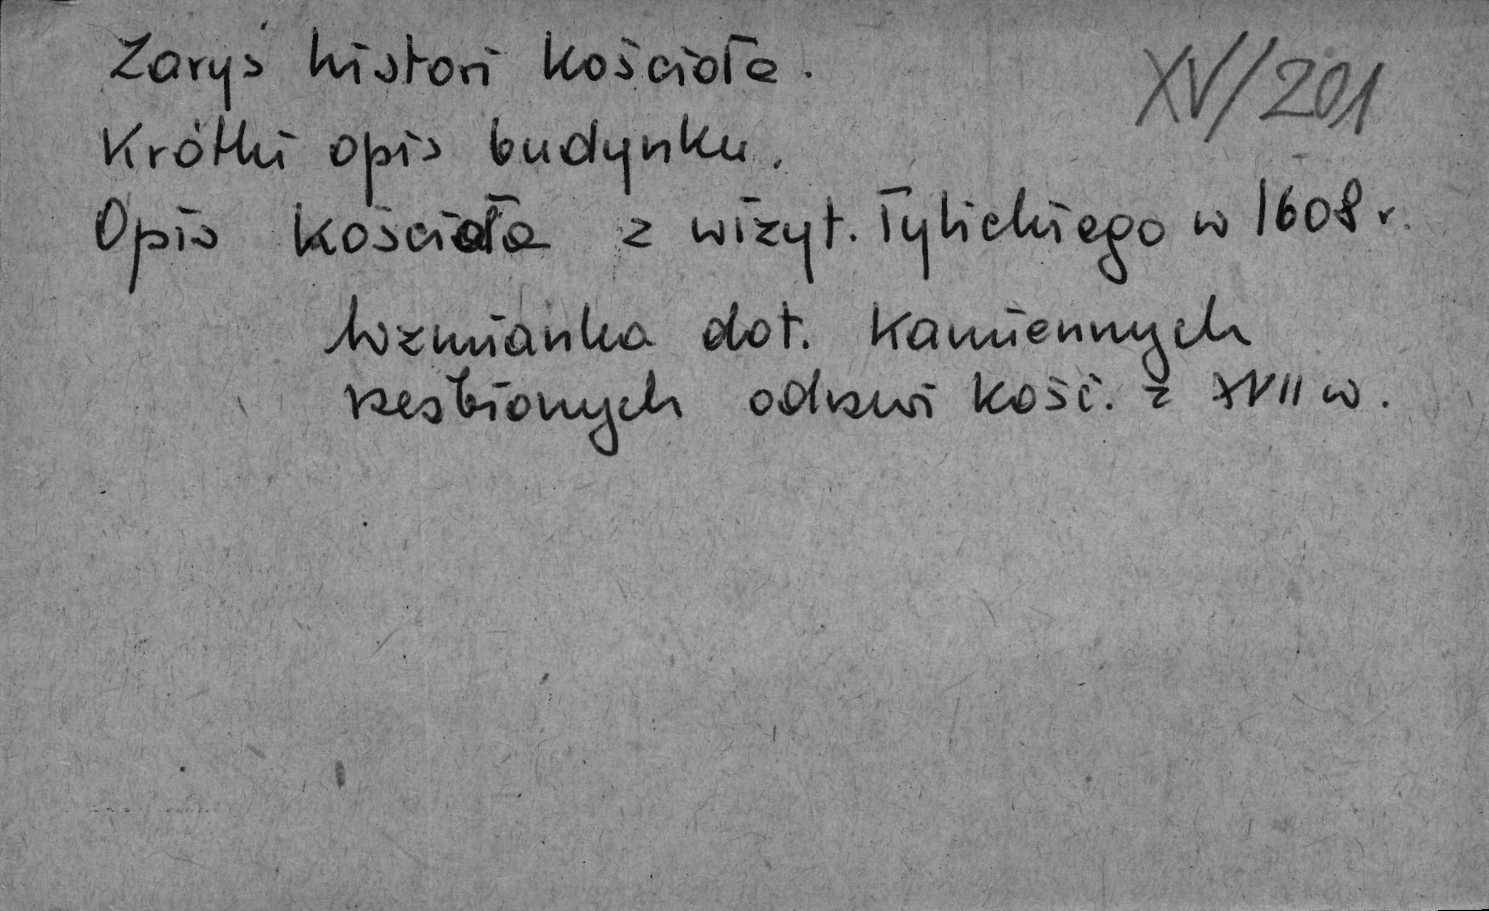 Zarys histori kościoła.
XV/201
Krótki opis budynku.
Opis kościoła z wizyt. Tylickiego w 1608 r.
Wzmianka dot. kamiennych
rzeźbionych odrzwi kość. z XVII w.